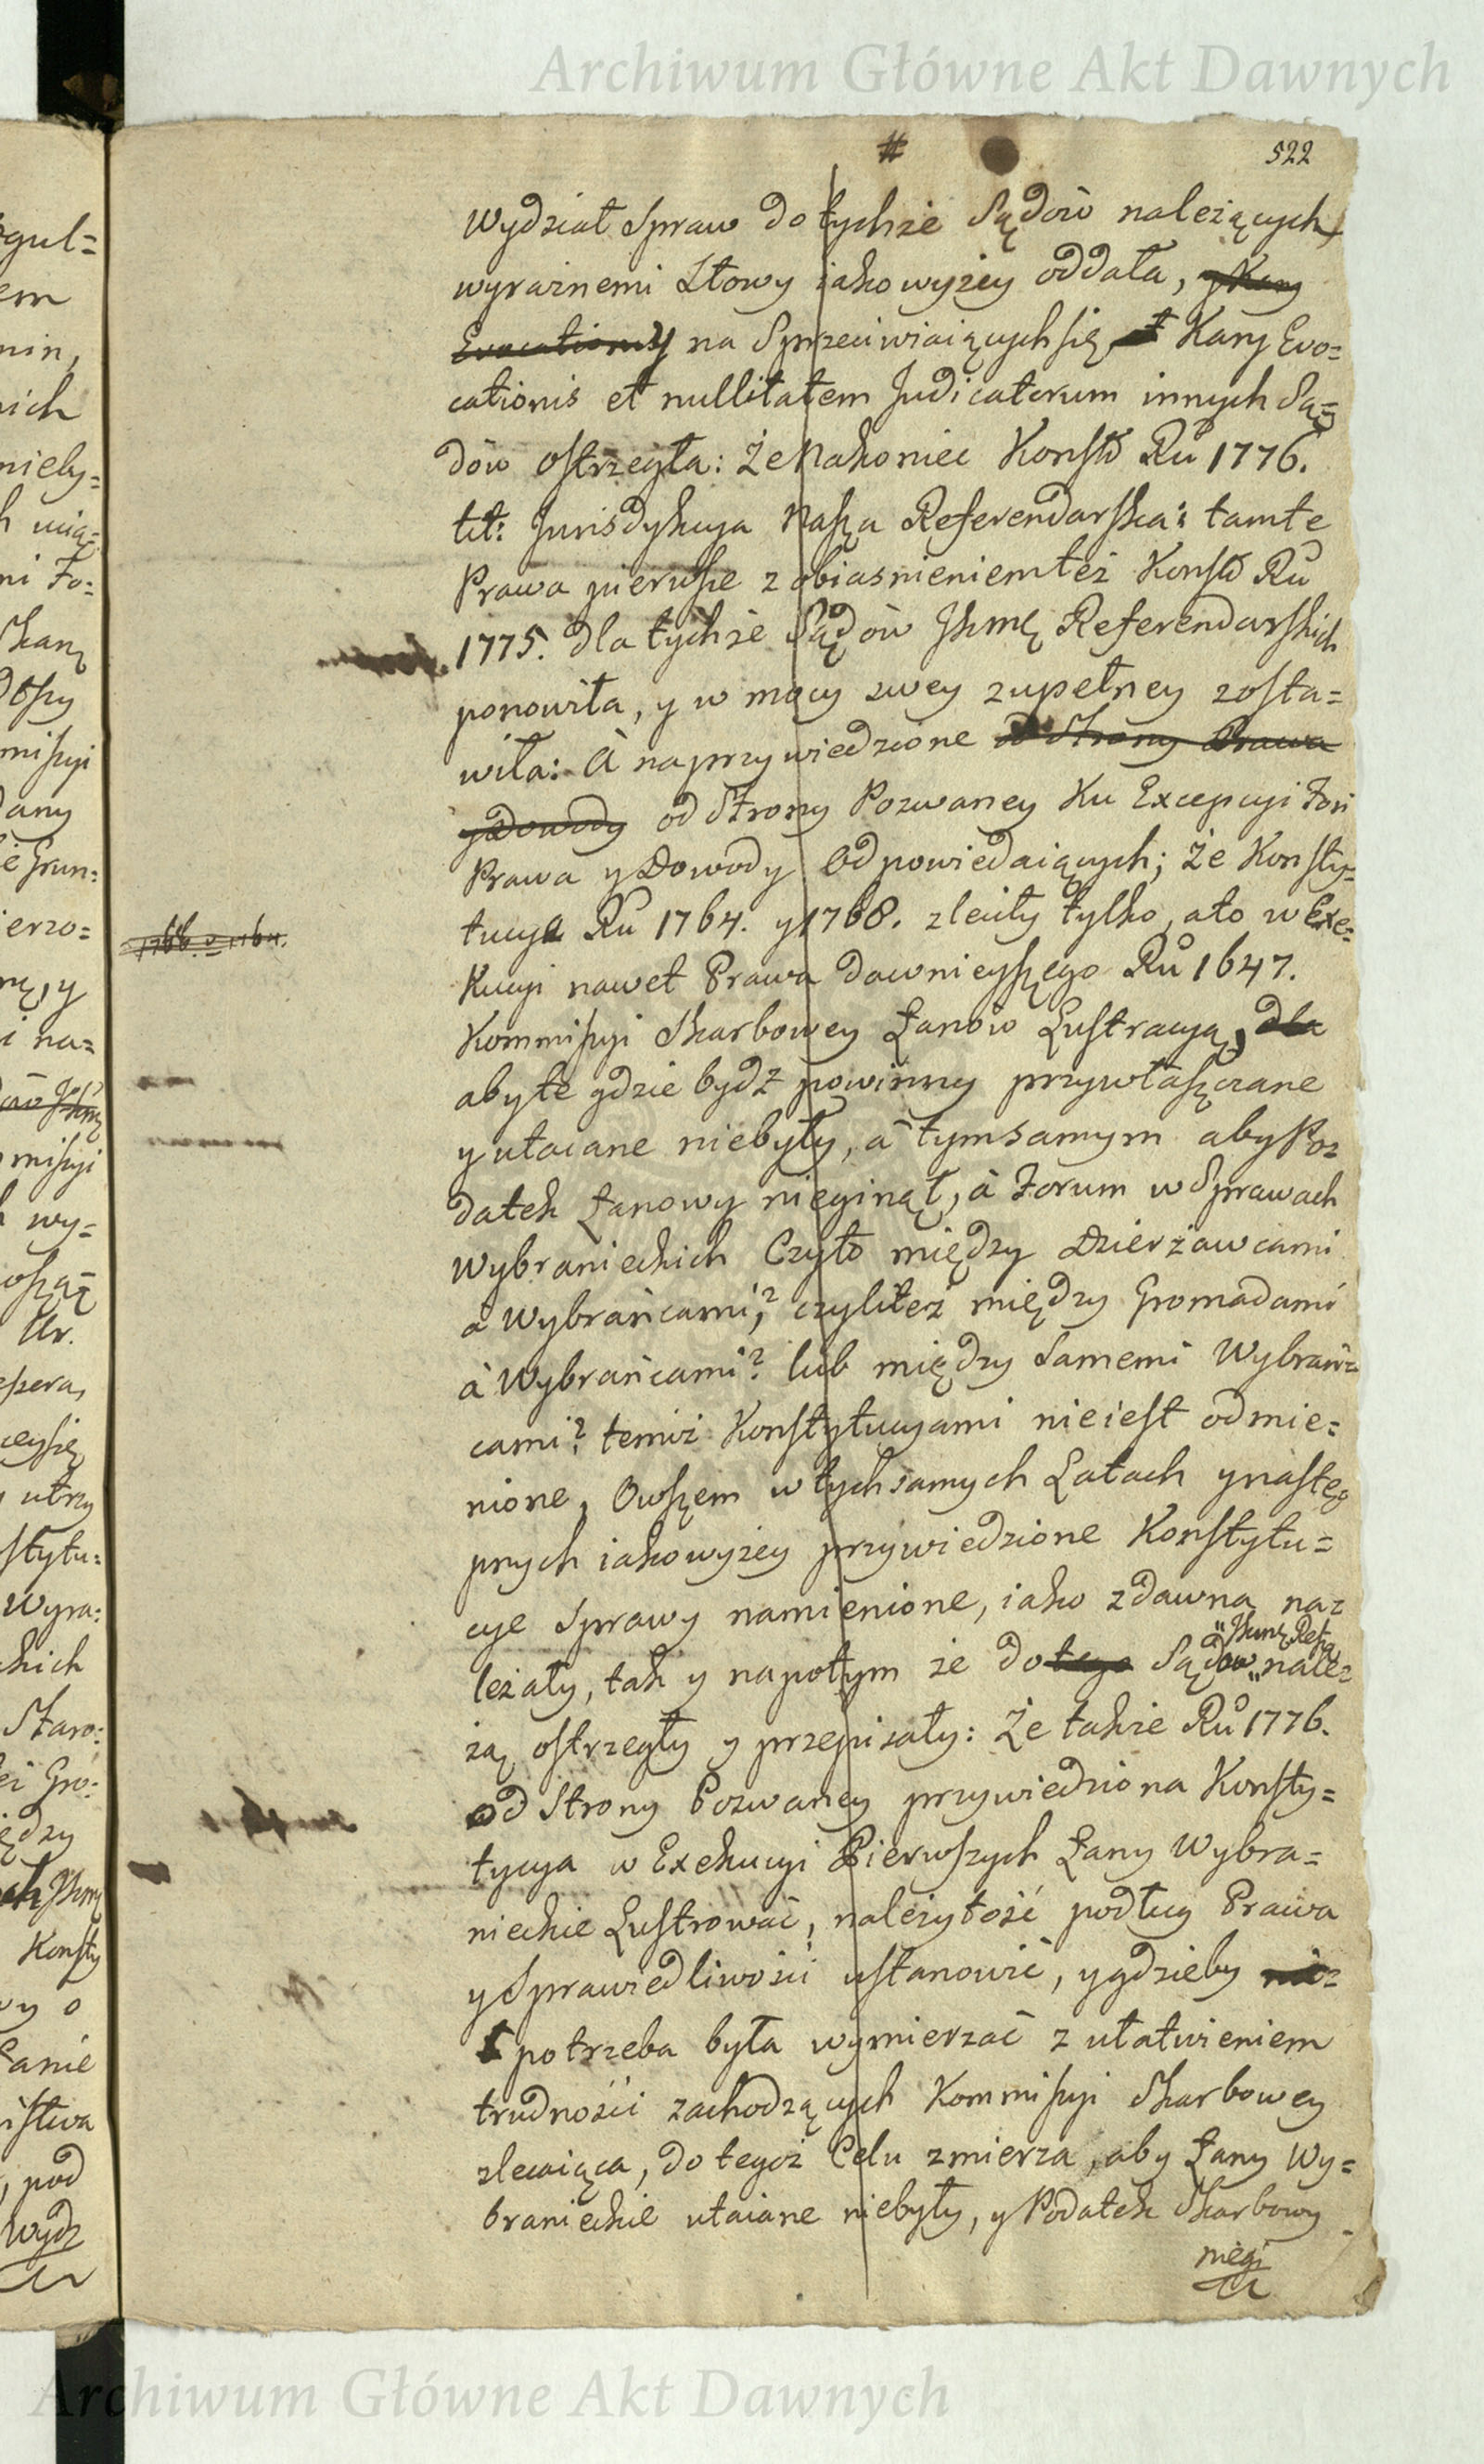 Archiwum Główne Akt Dawnych
#
522
Wydział Spraw do tychże Sądów należących
wyraźnemi Słowy iako wyżey oddała, y Kary
Evocationis y na Sprzeciwiaiących się Kary Evo=
cationis et nullitatem Judicatorum innych Są=
dów ostrzegła: Że nakoniec Konstů Rů 1776.
tit: Jurisdykcya Nasza Referendarska: tamte
Prawa pierwsze z obiasnieniem też Konstů Rů
1775. dla tychże Sądów Jhmę Referendarskich
ponowiła, y w mocy swey zupełney zosta=
wiła: à na przywiedzione od Strony Prawa
y Dowody od Strony Pozwaney Ku Excepcyi Fori
Prawa y Dowody Odpowiedaiących; Że Konsty=
tucye Rů 1764. y 1768. zleciły tylko, a to w Exe=
Kucyi nawet Prawa dawnieyszego Rů 1647.
1766. y 1764.
Kommissyi Skarbowey Łanów Lustracyą, dla
aby te gdzie bydź powinny przywłaszczane
y utaiane niebyły, à tym samym aby Po=
datek Łanowy nieginął, à Forum w Sprawach
Wybranieckich Czyto między Dzierżawcami
à Wybrańcami,? czyliteż między Gromadami
à Wybrańcami? lub między Samemi Wybrań=
cami? temiż Konstytucyami nieiest odmie=
nione, Owszem w tych samych Latach y nastę=
pnych iako wyżey przywiedzione Konstytu=
cye Sprawy namienione, iako zdawna na=
leżały, tak y napotym że do tego Sądów Jhmę Refg nale=
żą ostrzegły y przepisały: Że także Rů 1776.
od Strony Pozwaney przywiedziona Konsty=
tycya w Exekucyi Pierwszych Łany Wybra=
nieckie Lustrować, należytość podług Prawa
y Sprawiedliwości ustanowić, y gdzieby nie=
potrzeba była wymierzać z ułatwieniem
trudności zachodzących Kommissyi Skarbowey
zlecaiąca, do tegoż Celu zmierza, aby Łany Wy=
branieckie utaiane niebyły, y Podatek Skarbowy
niegi
Archiwum Główne Akt Dawnych